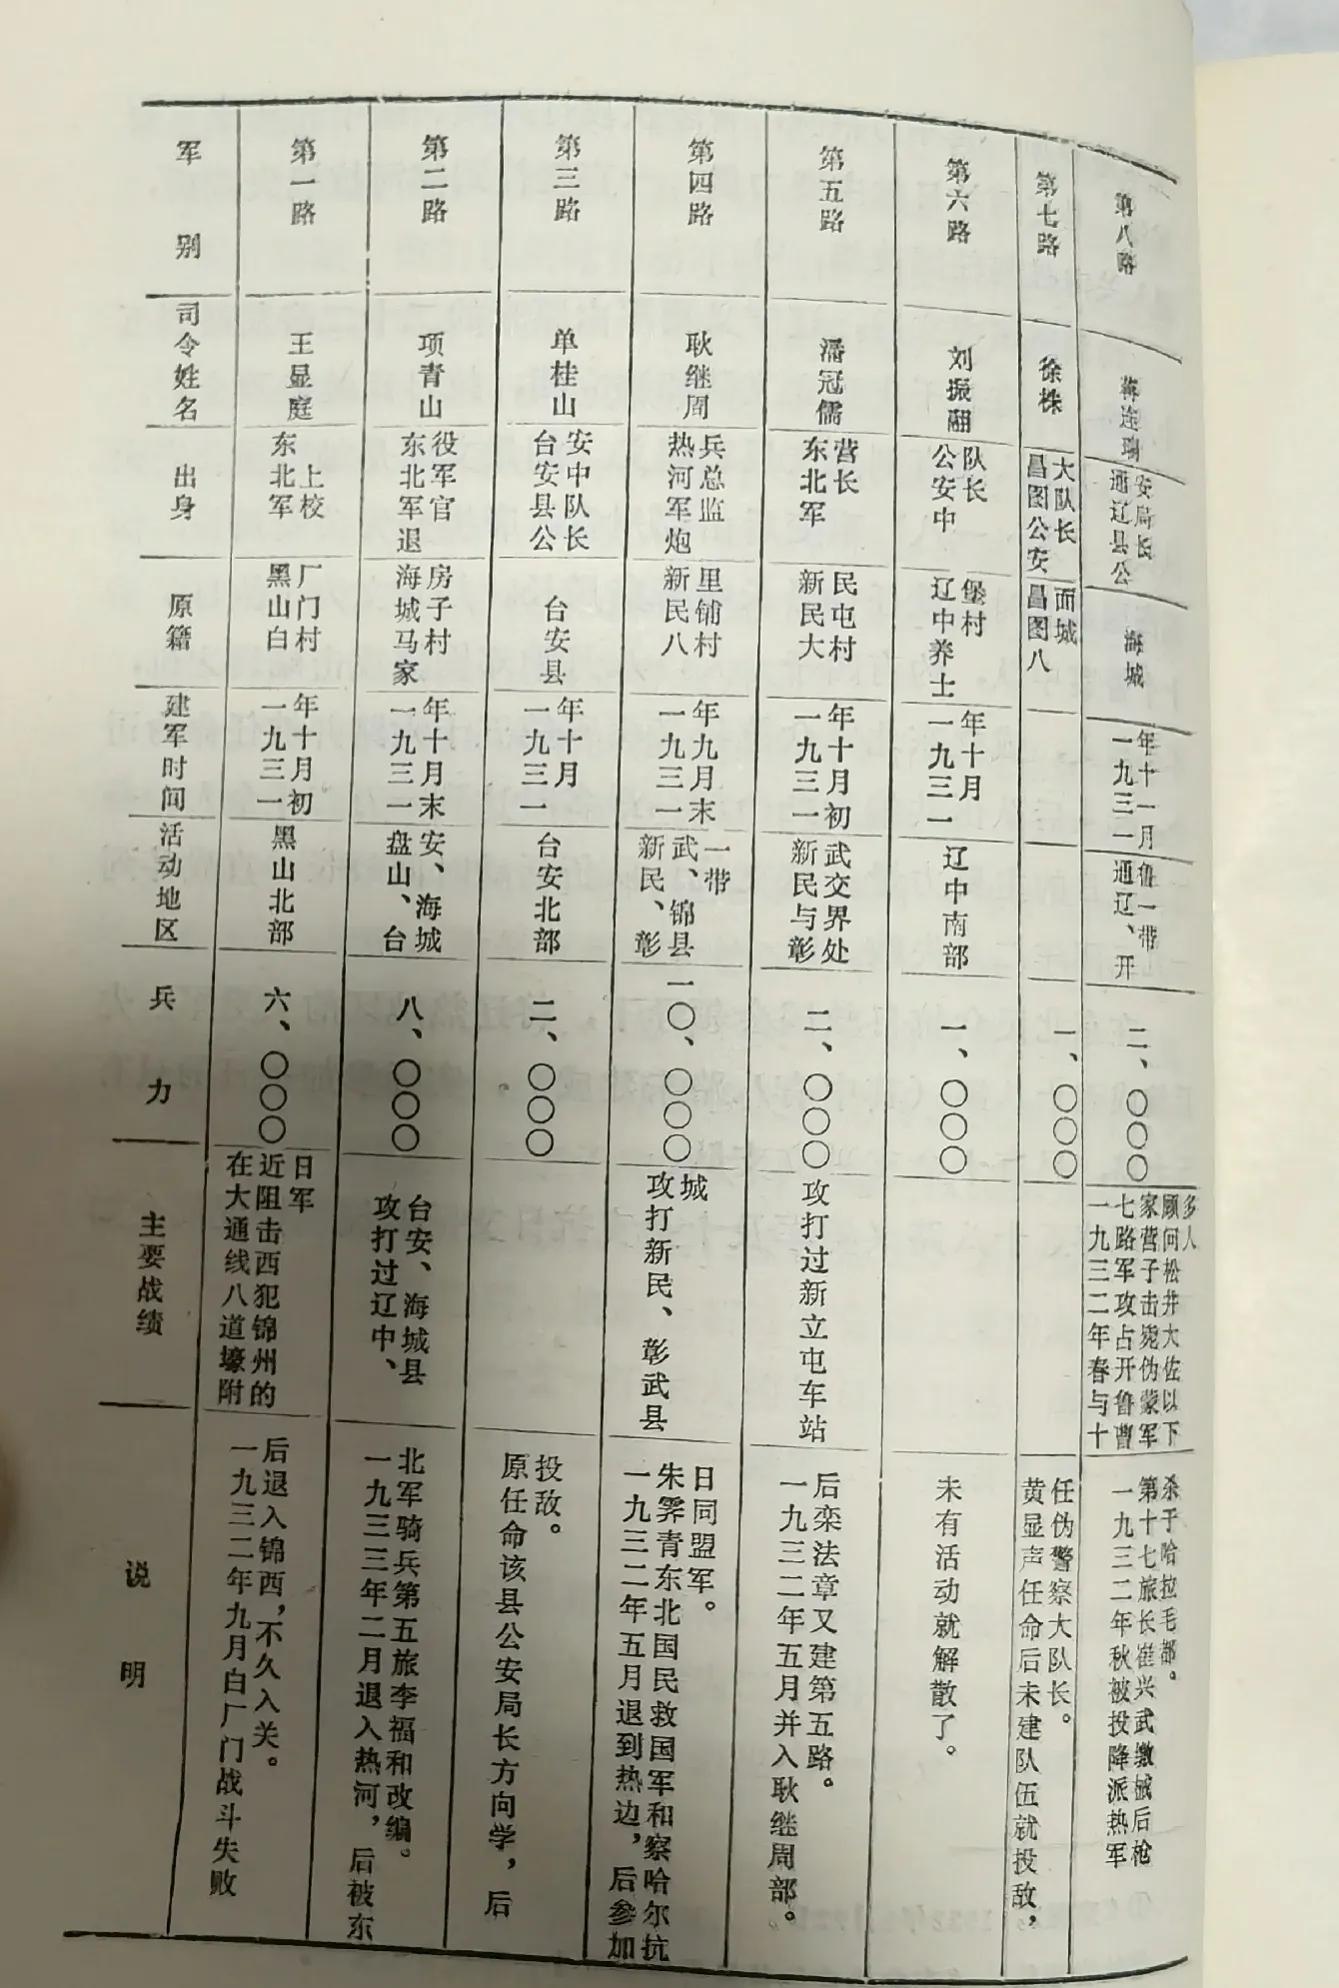 军别
司令姓名
出身
原籍
建军时间
活动地区
兵力
主要战绩
说明
第一路
王显庭
东北军
上校
黑山白
厂门村
一九三一
年十月初
黑山北部
六、〇〇〇
在大通线八道壕附
近阻击西犯锦州的
日军
一九三二年九月白厂门战斗失败
后退入锦西，不久入关。
第二路
项青山
东北军退
役军官
海城马家
房子村
一九三一
年十月末
盘山、台
安、海城
八、〇〇〇
攻打过辽中、
台安、海城县
一九三三年二月退入热河，后被东
北军骑兵第五旅李福和改编。
第三路
单桂山
台安县公
安中队长
台安县
一九三一
年十月
台安北部
二、〇〇〇
原任命该县公安局长方向学，后
投敌。
第四路
耿继周
热河军炮
兵总监
新民八
里铺村
一九三一
年九月末
新民、彰
武、锦县
一带
一〇、〇〇〇
攻打新民、彰武县
城
一九三二年五月退到热边，后参加
朱霁青东北国民救国军和察哈尔抗
日同盟军。
第五路
潘冠儒
东北军
营长
新民大
民屯村
一九三一
年十月初
新民与彰
武交界处
二、〇〇〇
攻打过新立屯车站
一九三二年五月并入耿继周部。
后栾法章又建第五路。
第六路
刘振翮
公安中
队长
辽中养士
堡村
一九三一
年十月
辽中南部
一、〇〇〇
未有活动就解散了。
第七路
徐株
昌图公安
大队长
昌图八
面城
一、〇〇〇
黄显声任命后未建队伍就投敌，
任伪警察大队长。
第八路
连瑞
通辽县公
安局长
海城
一九三一
年十一月
通辽、开
鲁一带
二、〇〇〇
一九三二年春与十
七路军攻占开鲁曹
家营子击毙伪蒙军
顾问松井大佐以下
多人
一九三二年秋被投降派热军
第十七旅长崔兴武缴械后枪
杀于哈拉毛都。